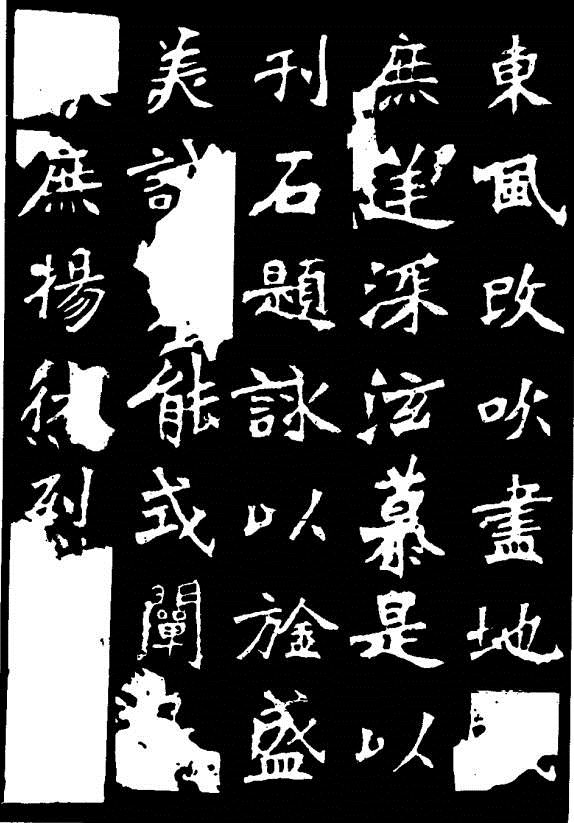 東風改吹盡地
庶深泫慕是以
刊石題詠以旌盛
美能式闡
庶揚烈